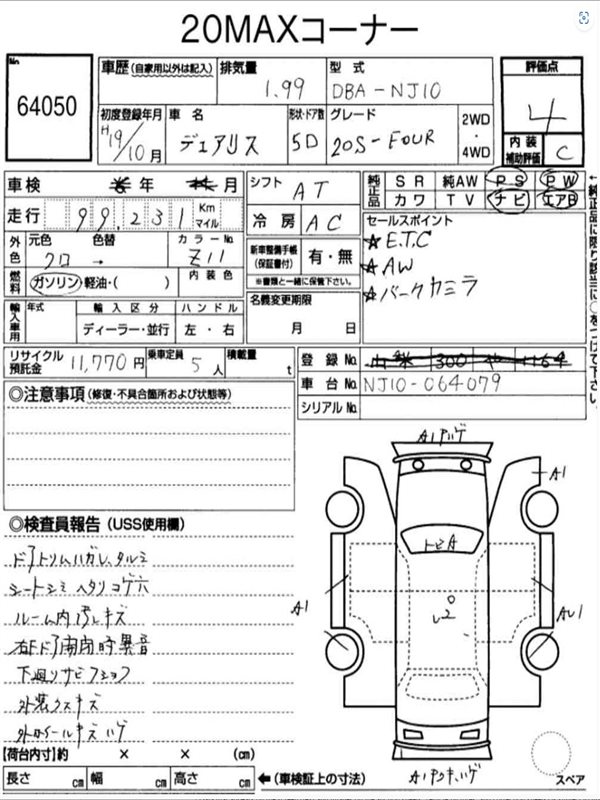 20MAXコーナー
No.
64050
車歴 (自家用以外は記入)
排気量
1.99
型式
DBA-NJ10
評価点
4
初度登録年月
H19/10月
車名
デュアリス
形状・ドア数
5D
グレード
20S-FOUR
2WD
・
4WD
内装
補助評価
C
車検 年 月
走行 99,231 Km
マイル
シフト AT
冷房 AC
純正品
SR 純AW PS PW
カワ TV ナビ エアB
←純正品に限り該当に○をつけて下さい。
外色
元色 色替 カラーNo.
クロ → Z11
燃料
ガソリン・軽油・( )
内装色
新車整備手帳
(保証書付)
有・無
※書類と一緒に保管下さい。
セールスポイント
★E.T.C
★AW
★バークカミラ
輸入車用
年式 輸入区分 ハンドル
ディーラー・並行 左・右
名義変更期限
月 日
リサイクル
預託金
11,770円
乗車定員
5人
積載量
t
登録No.
300
車台No. NJ10-064079
シリアルNo.
◎注意事項 (修復・不具合箇所および状態等)
◎検査員報告 (USS使用欄)
ドアトリムハガレ、タルミ
シートシミ ヘタリ コゲ穴
ルーム内汚レキズ
右Fドア開閉時異音
下廻リサビ
外装ウスキズ
外ホイールキズハゲ
A1ハゲ
A1
トビA
A1
A1
【荷台内寸】約 × × (cm)
長さ cm 幅 cm 高さ cm ←(車検証上の寸法)
スペア